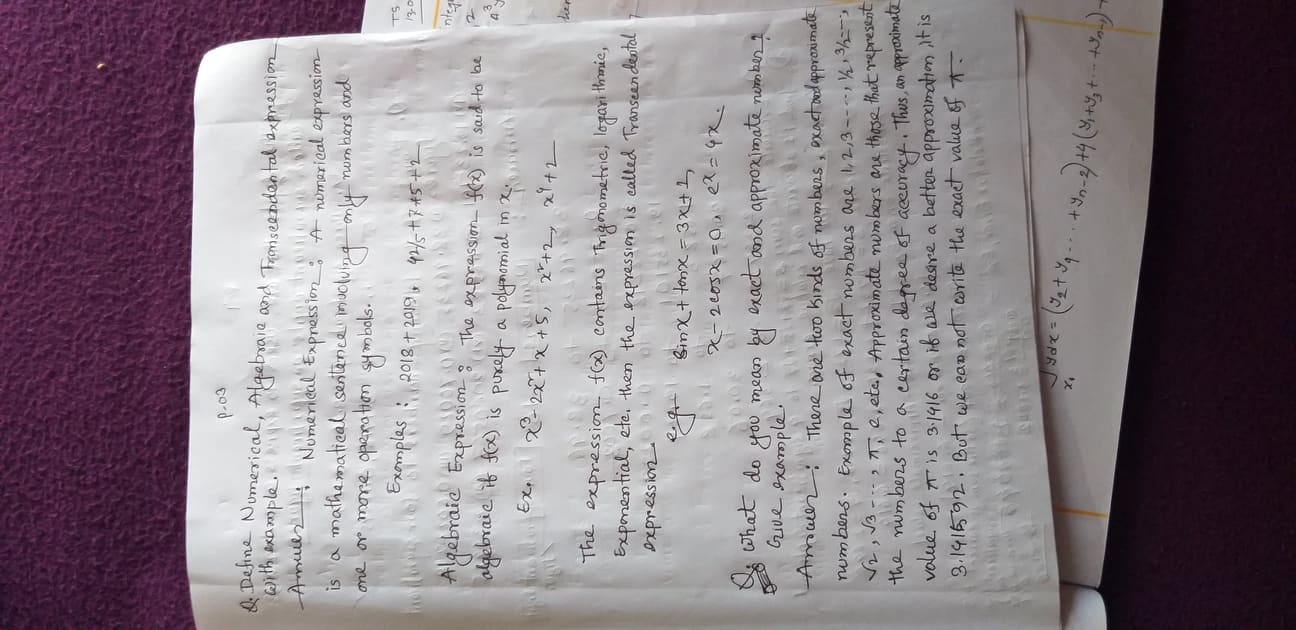 P-03
Q. Define Numerical, Algebraic and Transcendental expression
with example.
Answer : Numerical Expression : A numerical expression
is a mathematical sentence involving only numbers and
one or more operation symbols.
Examples : 2018 + 2019, 42/5 + 7 + 5 + 2
Algebraic Expression : The expression f(x) is said to be
algebraic if f(x) is purely a polynomial in x.
Ex. x³ - 2x² + x + 5, x² + 2, x⁴ + 2
The expression f(x) contains Trigonometric, logarithmic,
Exponential, etc. then the expression is called Transcendental
expression.
e.g. sinx + tanx = 3x + 1,
x - 2cosx = 0, eˣ = 4x.
Q. What do you mean by exact and approximate number?
Give example.
Answer : There are two kinds of numbers, exact and approximate
numbers. Example of exact numbers are 1, 2, 3 ----, ½, 3/2 ---,
√2, √3 ---, π, e, etc. Approximate numbers are those that represent
the numbers to a certain degree of accuracy. Thus, an approximate
value of π is 3.1416 or if we desire a better approximation, it is
3.141592. But we can not write the exact value of π.
TS
13.0
2
∫ydx = (y₂ + y₄ ... + yₙ₋₂) + 4 (y₁ + y₃ + ... + yₙ₋₁) +
x₁